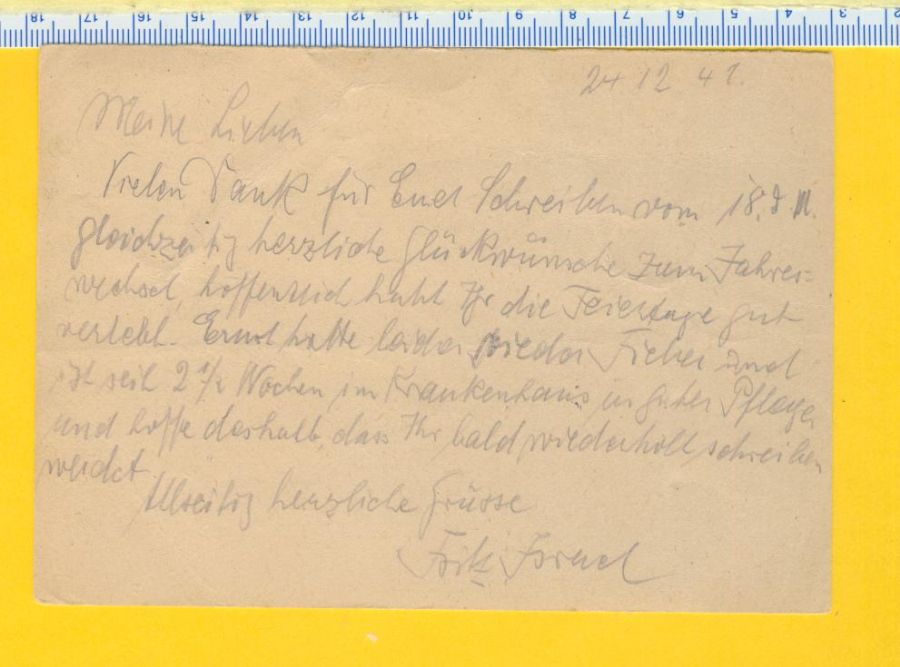 18 17 16 15 14 13 12 11 10 9 8 7 6 5 4 3 2
24 12 41.
Meine Lieben
Vielen Dank für Euer Schreiben vom 18. d M.
gleichzeitig herzliche Glückwünsche zum Jahres=
wechsel, hoffentlich habt Ihr die Feiertage gut
verlebt. Ernst hatte leider wieder Fieber und
ist seit 2 1/2 Wochen im Krankenhaus in guter Pflege
und hoffe deshalb, dass Ihr bald wiederholt schreiben
werdet.
Allseitig herzliche Grüsse
Fritz Israel